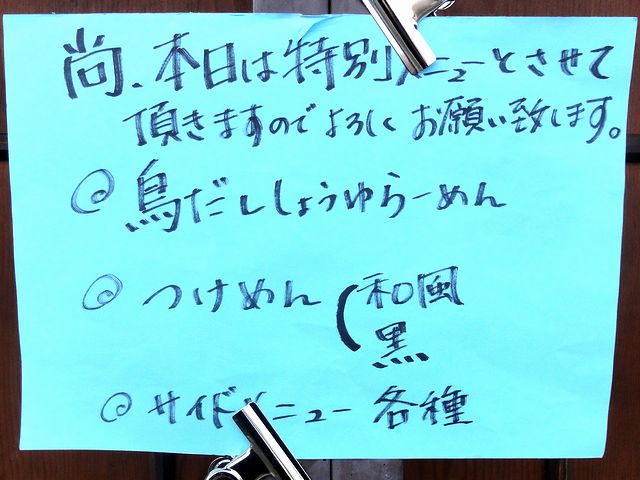 尚、本日は特別メニューとさせて
頂きますのでよろしくお願い致します。
◎ 鳥だししょうゆらーめん
◎ つけめん（和風
黒
◎ サイドメニュー 各種